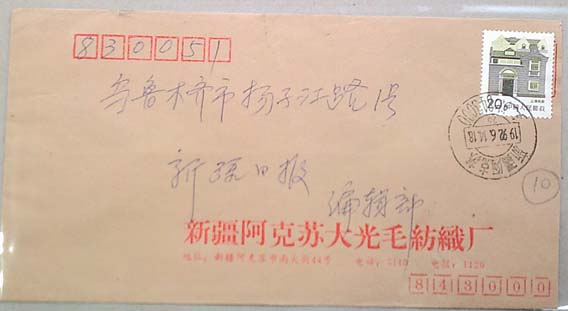 830051
乌鲁木齐市扬子江路1号
新疆日报
编辑部
20
中国人民邮政
1992.6.14.18
新疆阿克苏大光毛紡織厂
地址：新疆阿克苏市南大街44号 电话：2110 电报：1120
843000
10